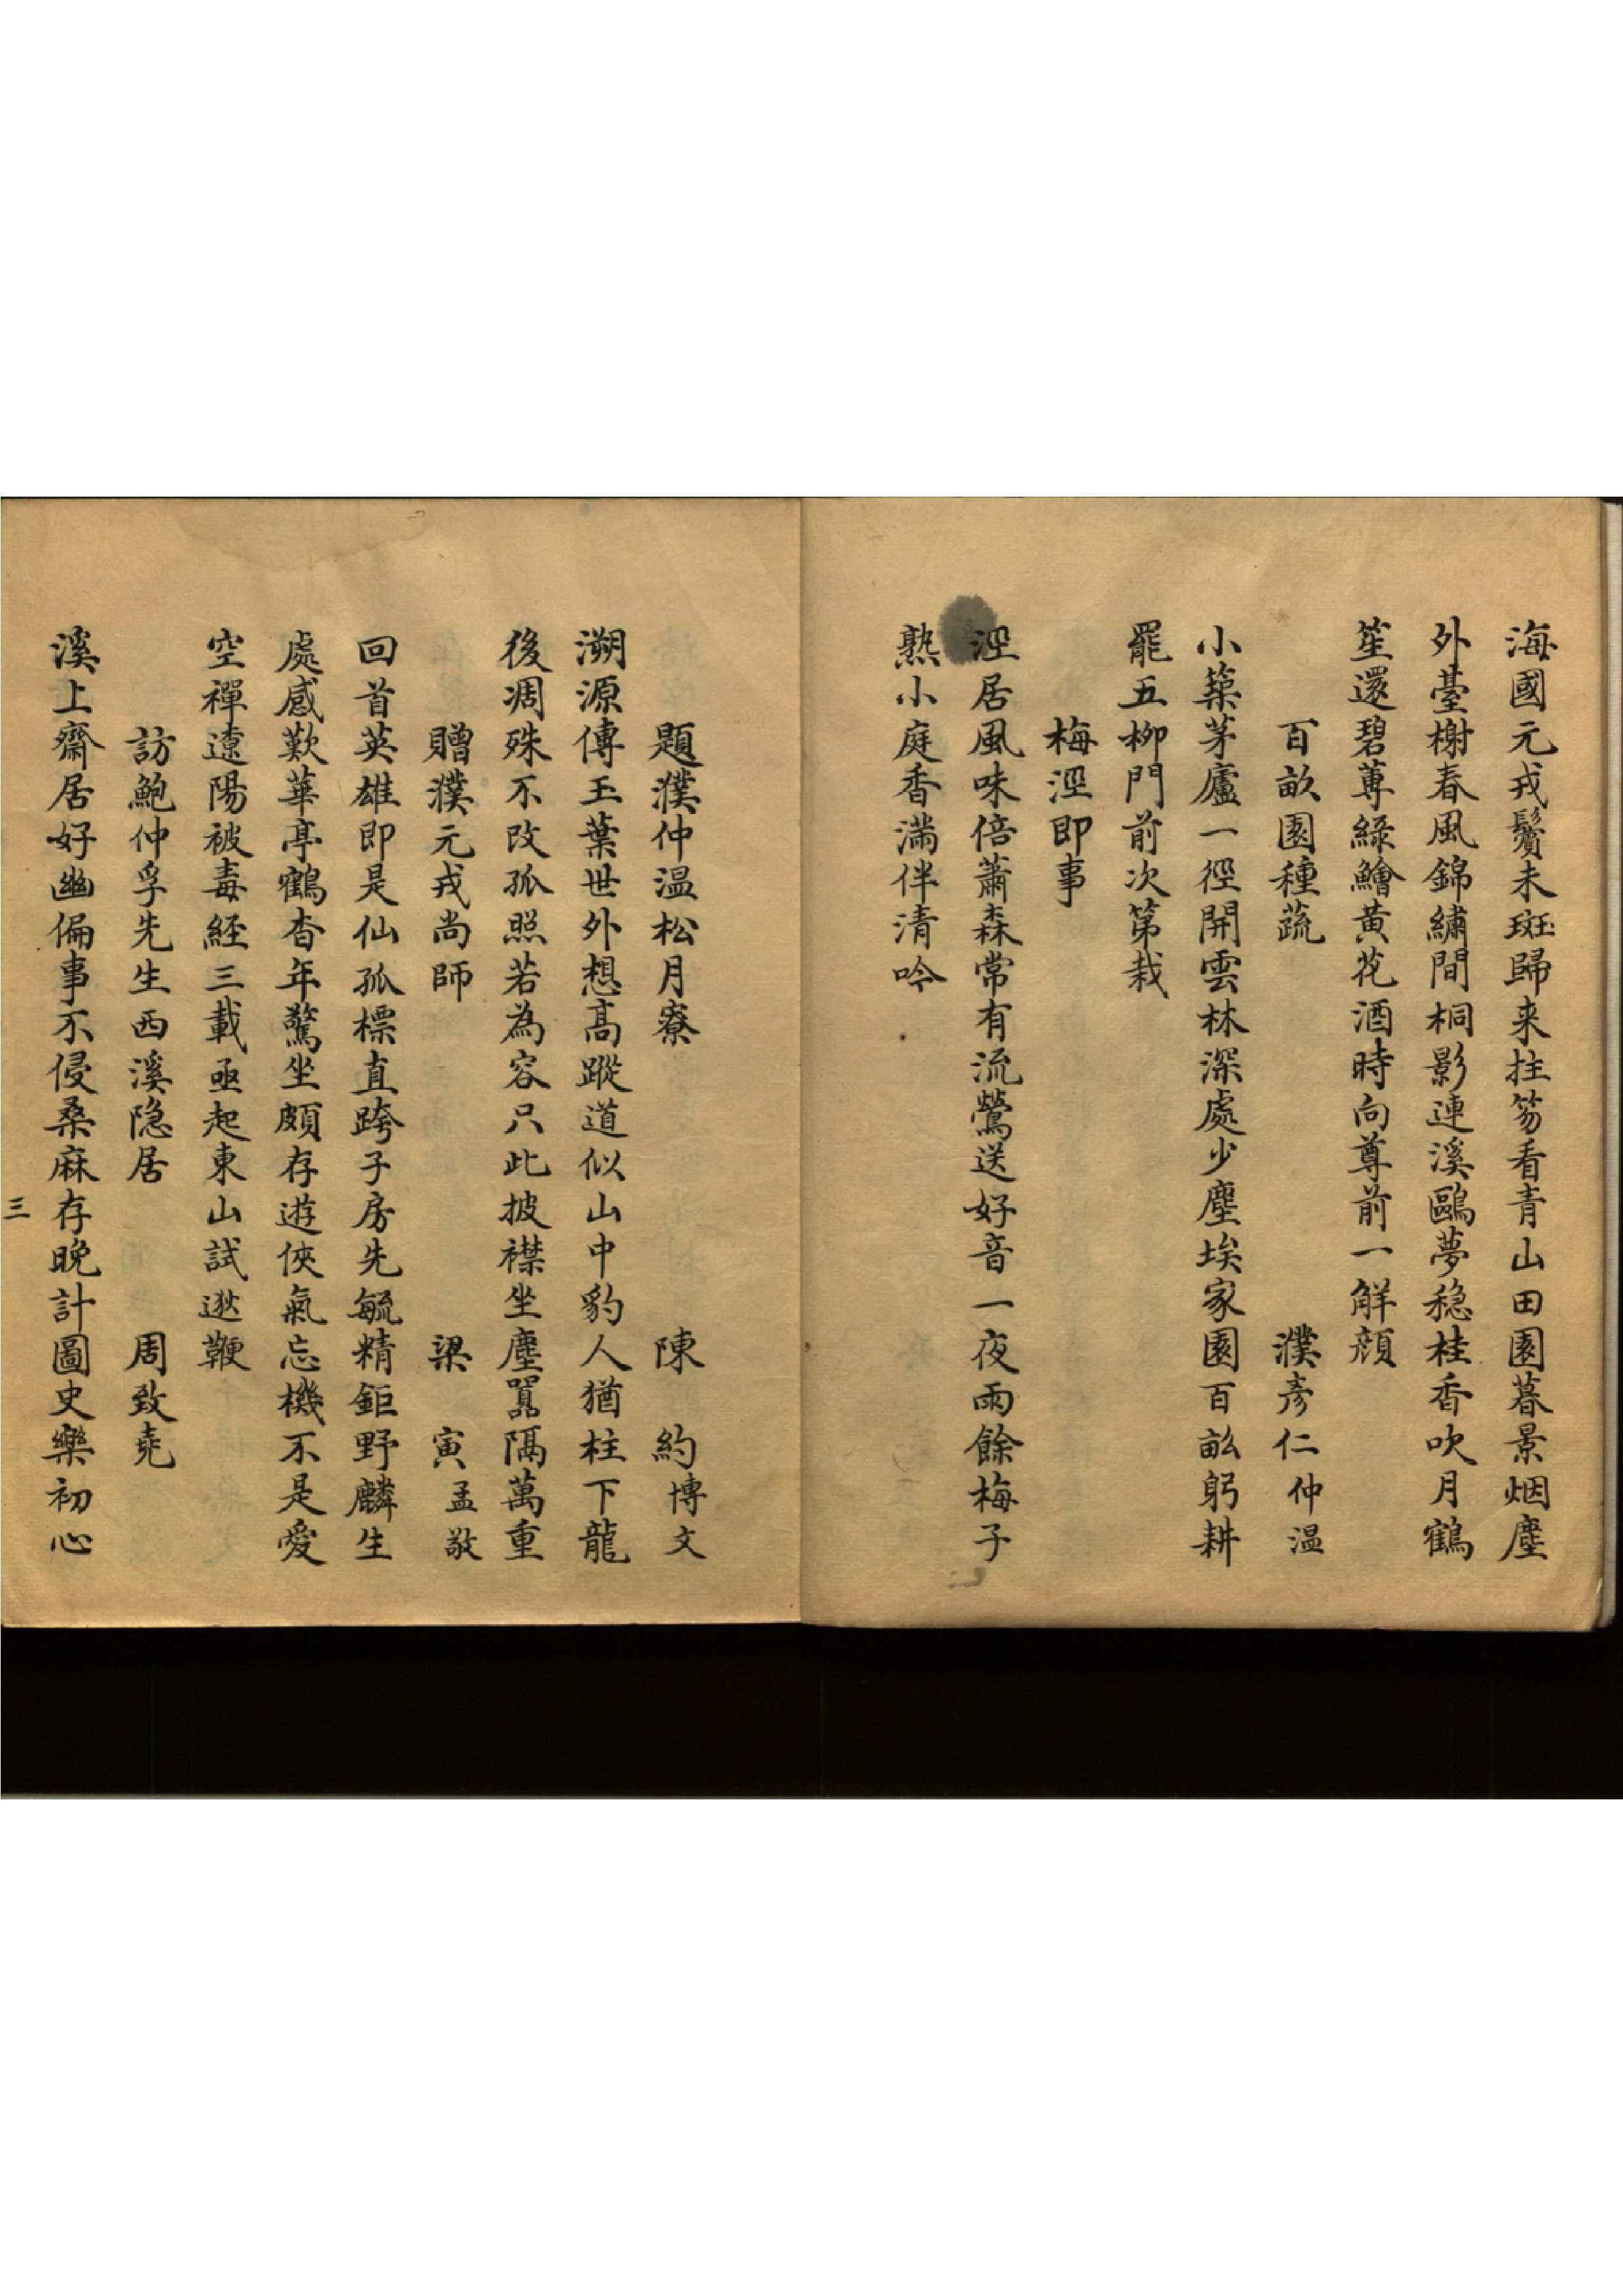 海國元戎鬢未斑歸来拄笏看青山田園暮景烟塵
外臺榭春風錦繡間桐影連溪鷗夢穏桂香吹月鶴
笙還碧蓴綠鱠黄花酒時向尊前一解顔
百畝園種蔬　濮彥仁仲温
小築茅廬一徑開雲林深處少塵埃家園百畝躬耕
罷五柳門前次第栽
梅涇即事
涇居風味倍蕭森常有流鶯送好音一夜雨餘梅子
熟小庭香滿伴清吟
題濮仲温松月寮　陳約博文
溯源傳玉葉世外想高蹤道似山中豹人猶柱下龍
後凋殊不改孤照若為容只此披襟坐塵囂隔萬重
贈濮元戎尚師　梁寅孟敬
回首英雄即是仙孤標直跨子房先毓精鉅野麟生
處感歎華亭鶴杳年驚坐頗存遊俠氣忘機不是愛
空禪遼陽被毒經三載亟起東山試逖鞭
訪鮑仲孚先生西溪隐居　周致堯
溪上齋居好幽偏事不侵桑麻存晚計圖史樂初心
三